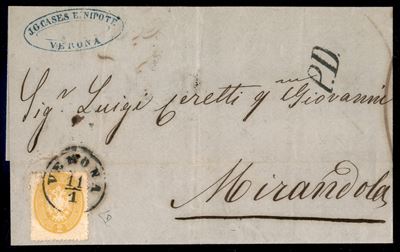 J. G. CASES E. NIPOTE
VERONA
P.D.
Sig.r Luigi Ceretti qm Giovanni
VERONA
11/1
Mirandola